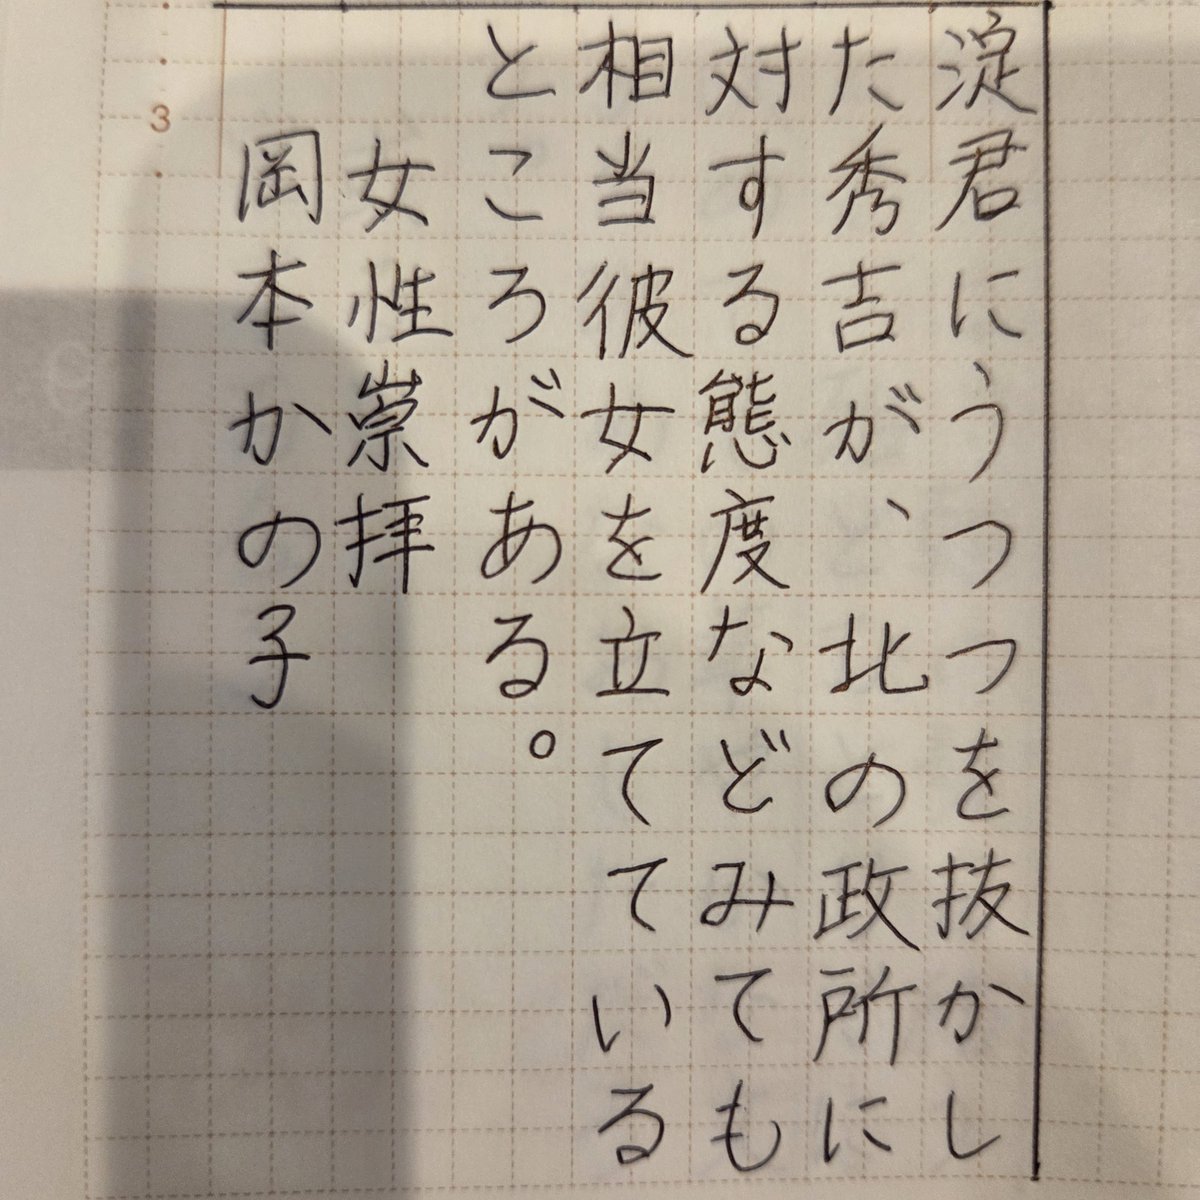 淀君にうつつを抜かし
た秀吉が、北の政所に
対する態度などみても
相当彼女を立てている
ところがある。
女性崇拝
岡本かの子
3